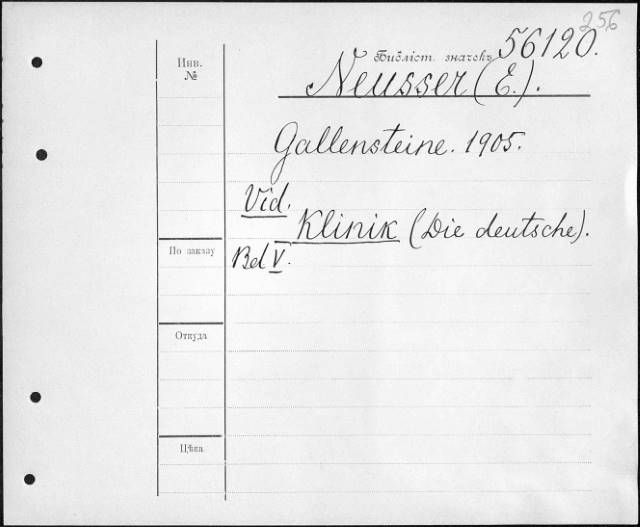 256
Инв.
№
Библіот. значекъ 56120.
Neusser (E.).
Gallensteine. 1905.
Vid.
Klinik (Die deutsche).
По заказу
Bd V.
Откуда
Цѣна